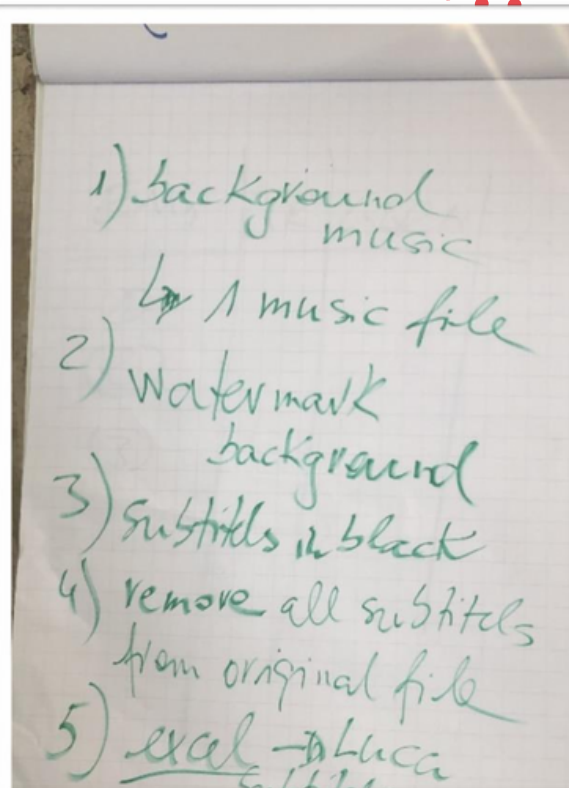 1) background
music
↳ 1 music file
2) watermark
background
3) subtitels in black
4) remove all subtitels
from original file
5) excel → Luca